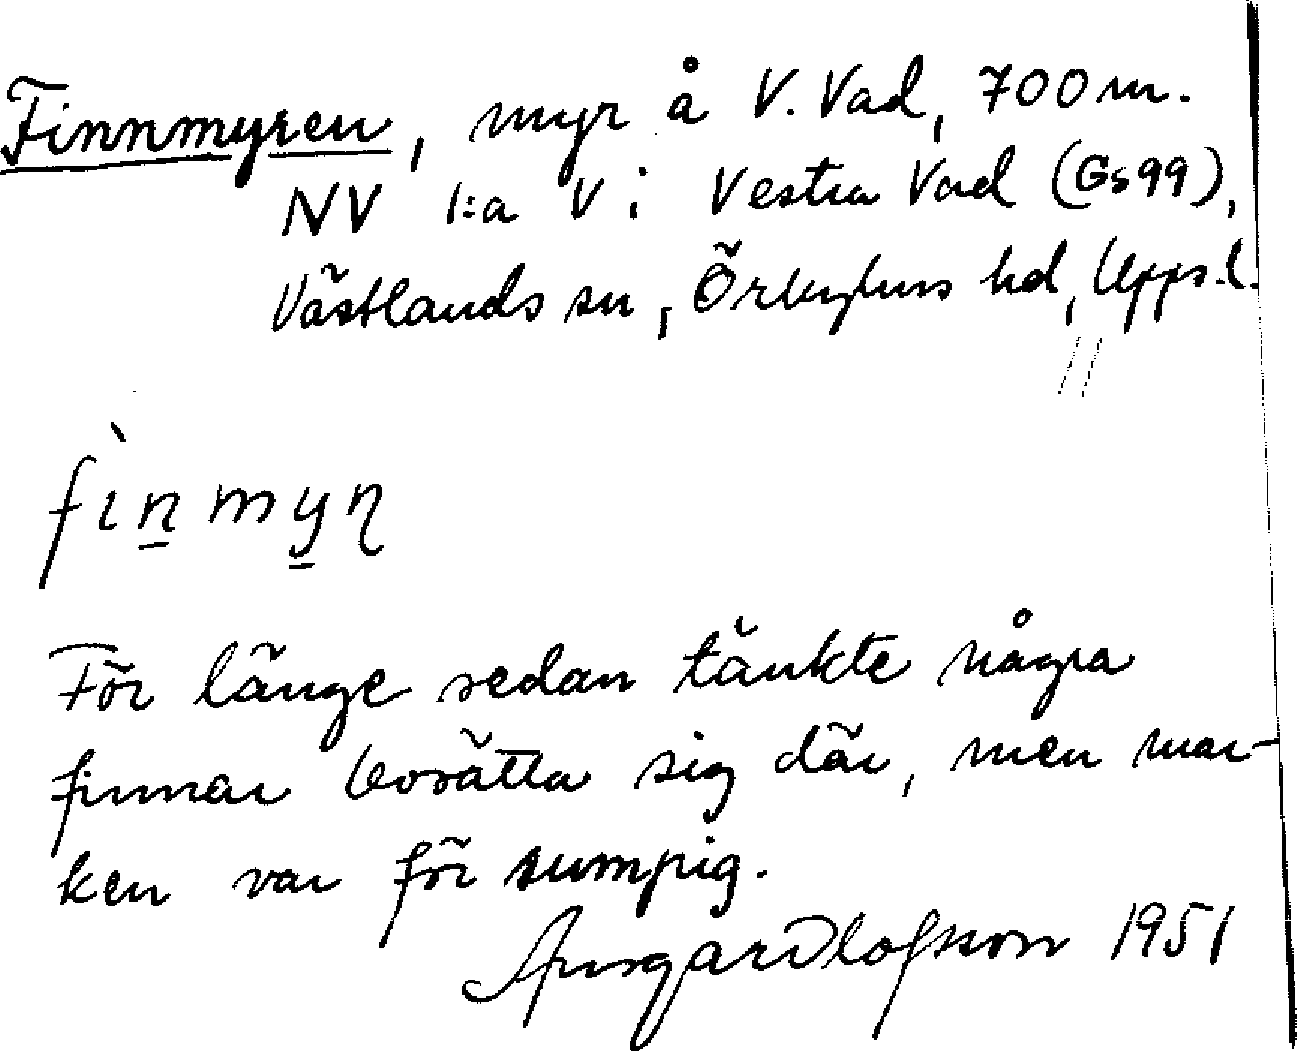 Finnmyren, myr å V. Vad, 700 m.
NV l:a V i Vestra Vad (Gs 99),
Västlands sn, Örbyhus hd, Uppsl.
fìn̲my̲ɳ
För länge sedan tänkte några
finnar bosätta sig där, men mar-
ken var för sumpig.
Ansgar Olofsson 1951